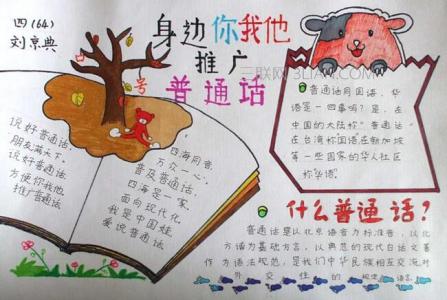 四(64)
刘京典
身边你我他
推广
普通话
说好普通话,
朋友满天下,
说好普通话
方便你我他
推广普通话
四海同音,
万众一心,
普及普通话,
四海是一家,
面向现代化,
我是中国娃,
爱说普通话
普通话同国语,华
语是一回事吗?是,在
中国的大陆称"普通话"
在台湾称国语在新加坡
等一些国家的华人社区
称华语
什么普通话?
普通话是以北京语音为标准音,以北
方话为基础方言,以典范的现代白话文著
作为语法规范,是我们中华民族相互交流对
外交往的规定语言
三联网 3LIAN.COM